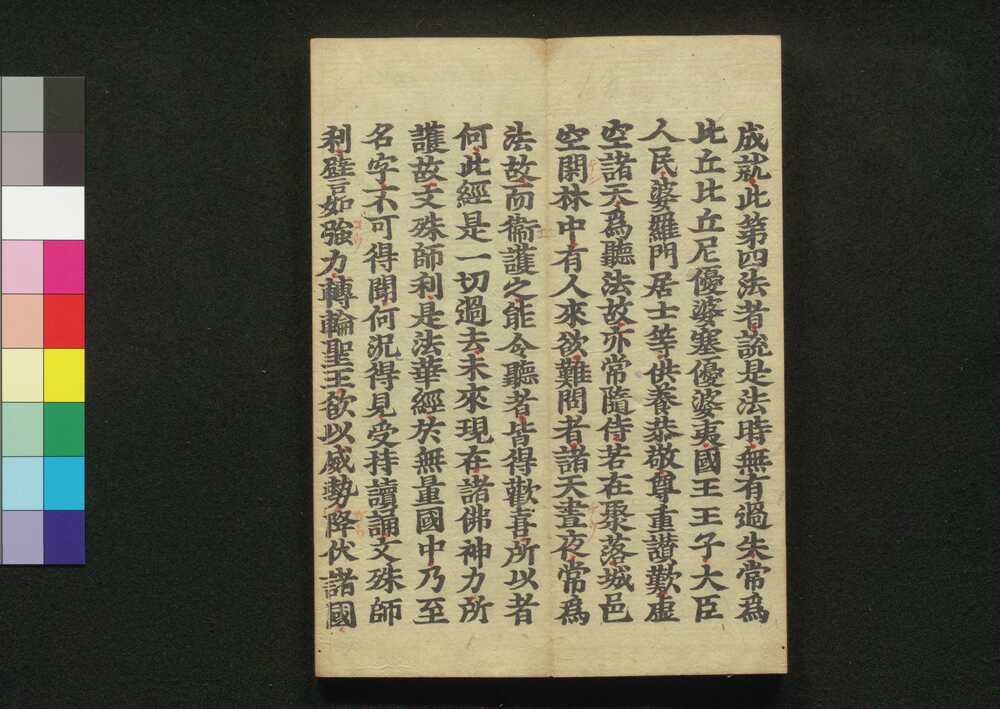 成就此第四法者說是法時無有過失常爲
比丘比丘尼優婆塞優婆夷國王王子大臣
人民婆羅門居士等供養恭敬尊重讃歎虛
空諸天爲聽法故亦常隨侍若在聚落城邑
空閑林中有人來欲難問者諸天晝夜常爲
法故而衞護之能令聽者皆得歡喜所以者
何此經是一切過去未來現在諸佛神力所
護故文殊師利是法華經於無量國中乃至
名字不可得聞何況得見受持讀誦文殊師
利譬如強力轉輪聖王欲以威勢降伏諸國